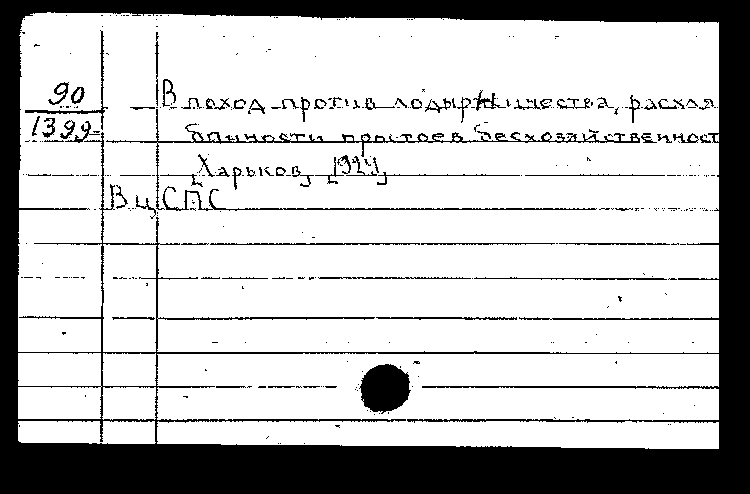 90
1399
В поход против лодырничества, расхля
банности простоев бесхозяйственност
[Харьков], [1924]
ВЦСПС